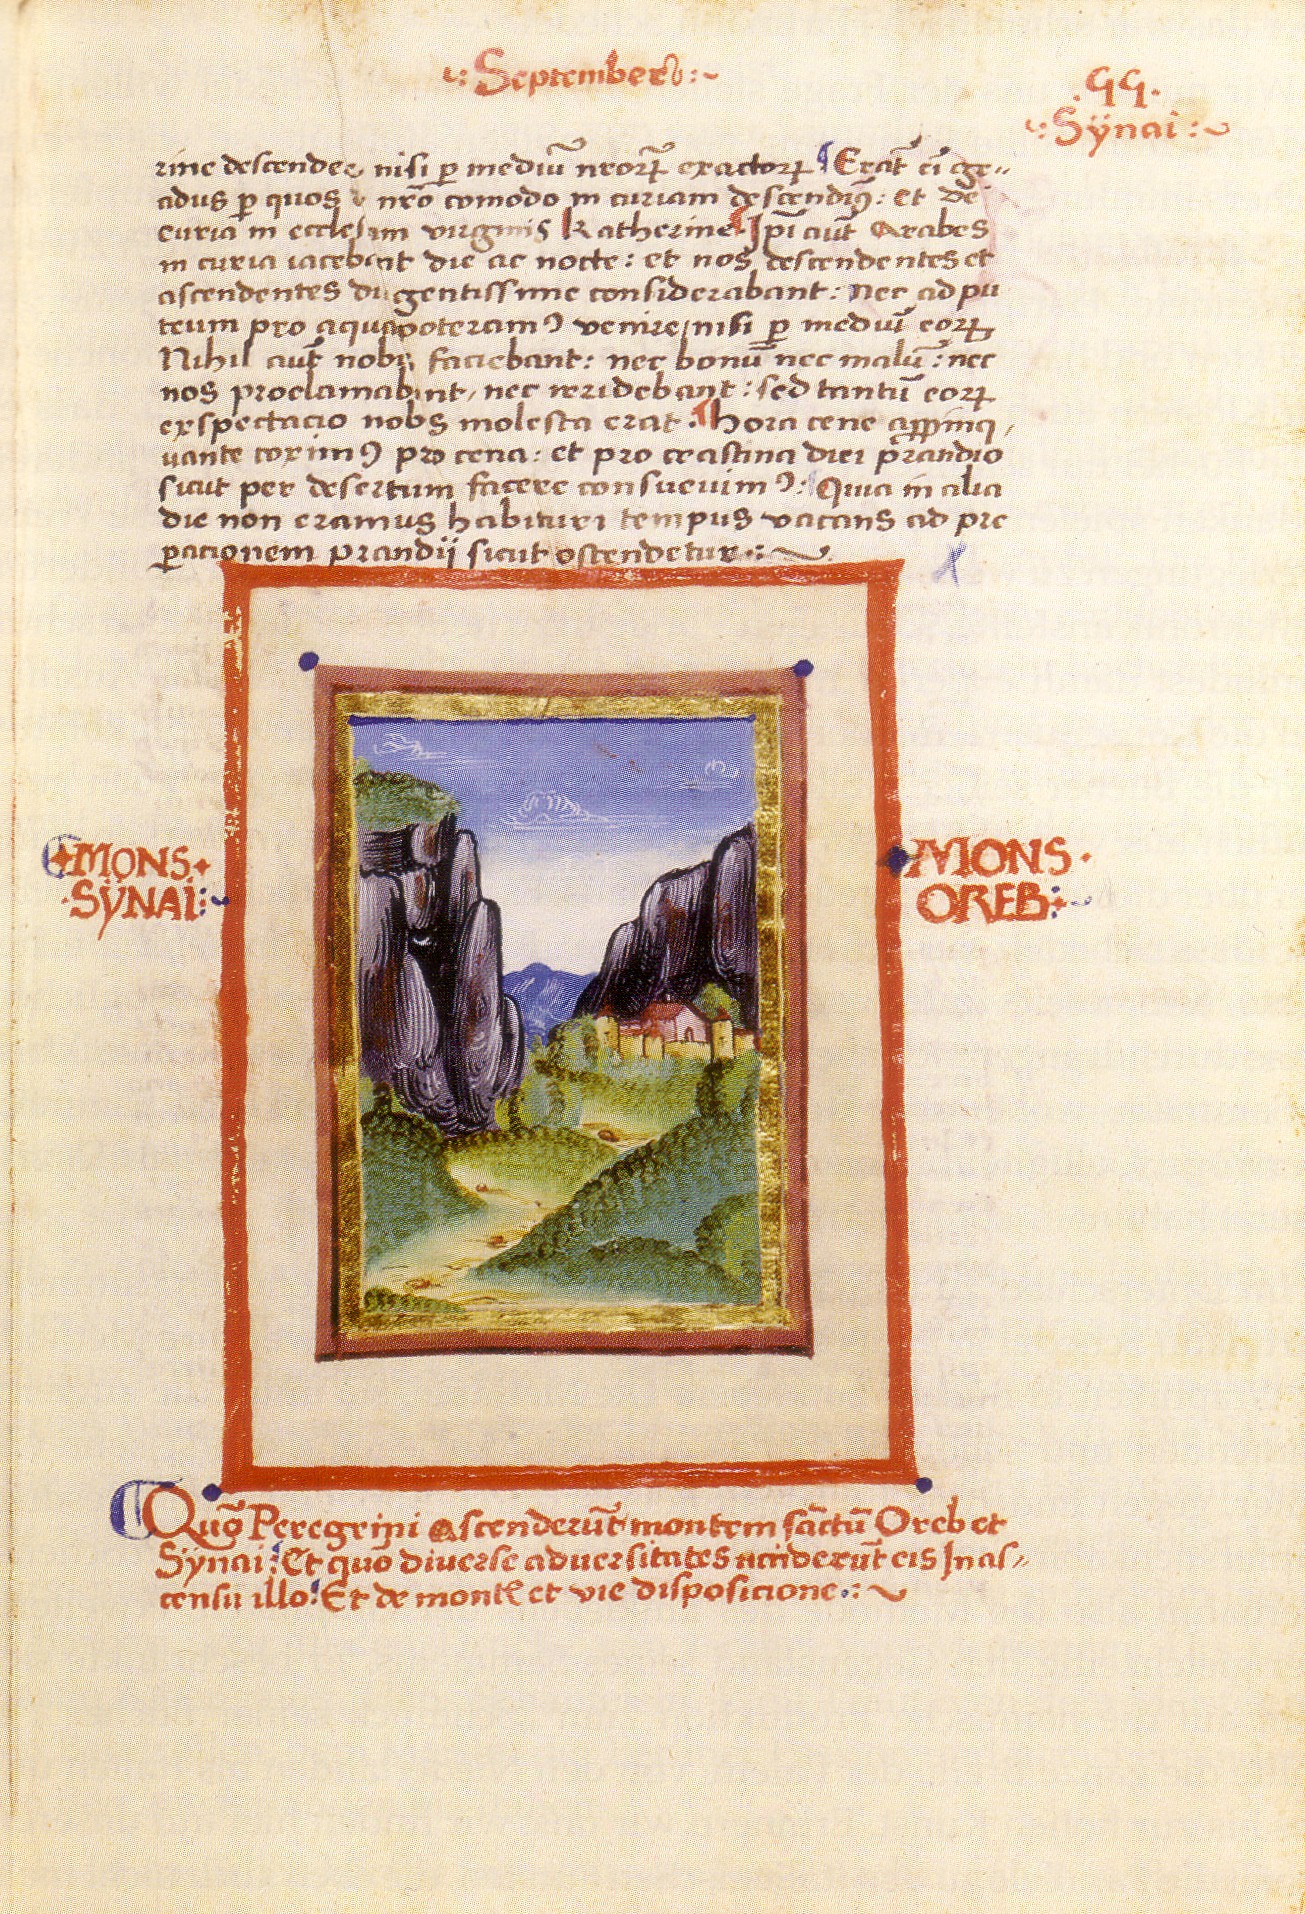 ·: September :·
·99·
·: Sÿnai :·
rine descendere nisi p mediū nr̄oꝝ exactoꝝ Erāt eī gr⸗
adus p quos nr̄o comodo in curiam descendimꝰ: et de
curia in ecclesiam virginis Katherine Ipi aūt Arabes
in curia iacebant die ac nocte: et nos descendentes et
ascendentes diligentissime considerabant: nec ad pu
teum pro aqua poteramꝰ venire nisi p mediū eoꝝ
Nihil aūt nobis faciebant: nec bonū nec malū: nec
nos proclamabant, nec irridebant: sed tantū eoꝝ
exspectacio nobis molesta erat. Hora cene appinq,
uante coximꝰ pro cena: et pro crastina diei prandio
sicut per desertum facere consuevimꝰ: Quia in alia
die non eramus habituri tempus vacans ad pre
paracionem prandij sicut ostendetur.:
MONS
SŸNAI:
MONS·
OREB:
Quō Peregrini Ascenderūt montem sāctū Oreb et
Sÿnai: Et quō diverse adversitates acciderūt eis In as⸗
censu illo: Et de montis et vie disposicione.: